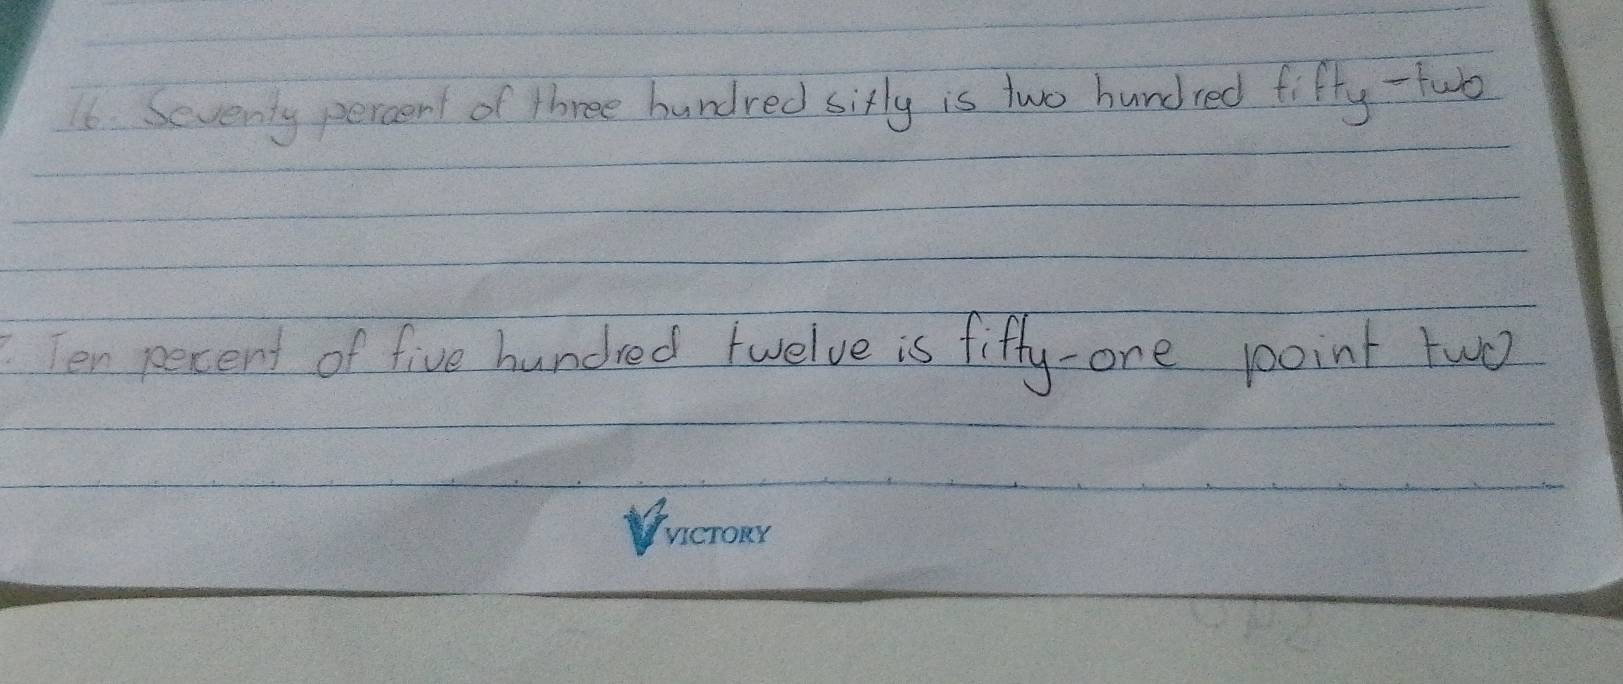 16. Seventy percent of three hundred sixty is two hundred fifty-two
. Ten percent of five hundred twelve is fifty-one point two
VICTORY